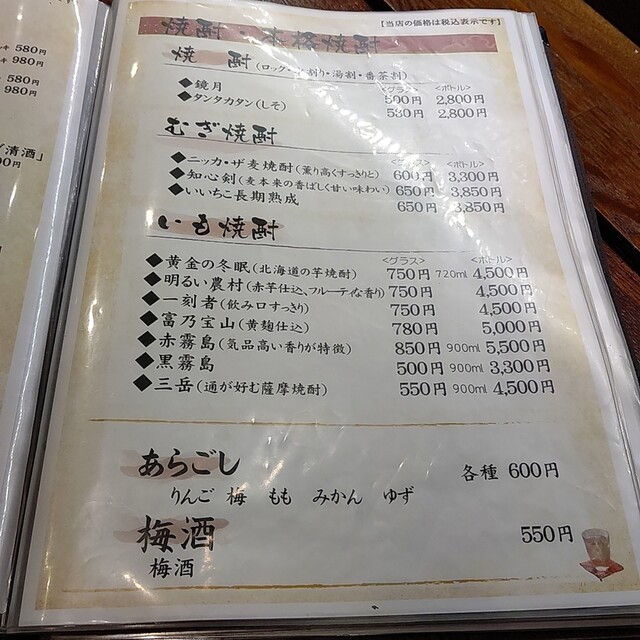 【当店の価格は税込表示です】
焼酎・本格焼酎
焼 酎(ロック・水割り・湯割・番茶割)
<グラス> <ボトル>
◆鏡月 500円 2,800円
◆タンタカタン(しそ) 530円 2,800円
むぎ焼酎
<グラス> <ボトル>
◆ニッカ・ザ麦焼酎(薫り高くすっきりと) 600円 3,300円
◆知心剣(麦本来の香ばしく甘い味わい) 650円 3,850円
◆いいちこ長期熟成 650円 3,850円
いも焼酎
<グラス> <ボトル>
◆黄金の冬眠(北海道の芋焼酎) 750円 720ml 4,500円
◆明るい農村(赤芋仕込、フルーティな香り) 750円 4,500円
◆一刻者(飲み口すっきり) 750円 4,500円
◆富乃宝山(黄麹仕込) 780円 5,000円
◆赤霧島(気品高い香りが特徴) 850円 900ml 5,500円
◆黒霧島 500円 900ml 3,300円
◆三岳(通が好む薩摩焼酎) 550円 900ml 4,500円
あらごし 各種 600円
りんご 梅 もも みかん ゆず
梅酒 550円
梅酒
580円
980円
580円
980円
「清酒」